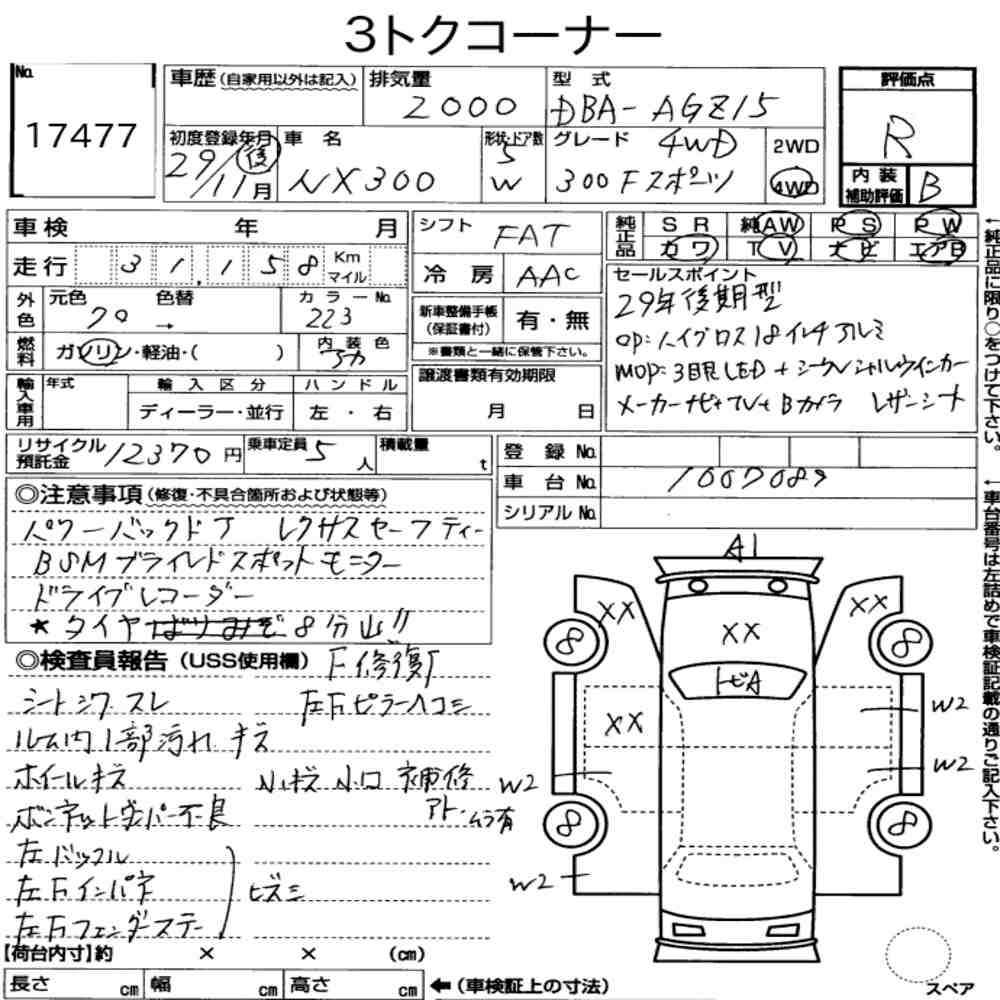 3トクコーナー
No.
17477
車歴(自家用以外は記入)
排気量
2000
型式
DBA-AGZ15
評価点
R
内装
補助評価
B
初度登録年月
29/11月
後
車名
NX300
形状・ドア数
5
W
グレード
4WD
300 Fスポーツ
2WD
4WD
車検 年 月
走行 31,158 Km マイル
外色
元色 色替
クロ →
カラーNo.
223
燃料
ガソリン・軽油・( )
内装色
アカ
輸入車用
年式
輸入区分
ディーラー・並行
ハンドル
左・右
シフト
FAT
冷房
AAC
新車整備手帳
(保証書付)
有・無
※書類と一緒に保管下さい。
譲渡書類有効期限
月 日
純正品
SR 純AW PS PW
カワ TV ナビ エアB
セールスポイント
29年後期型
OP:ハイグロス18インチアルミ
MOP:3眼LED+シーケンシャルウインカー
メーカーナビ+TV+Bカメラ レザーシート
←純正品に限り○をつけて下さい。
リサイクル
預託金
12370円
乗車定員
5人
積載量
t
登録No.
車台No.
1007089
シリアルNo.
←車台番号は左詰めで車検証記載の通りご記入下さい。
◎注意事項(修復・不具合箇所および状態等)
パワーバックドア レクサスセーフティー
BSM ブラインドスポットモニター
ドライブレコーダー
★タイヤ 8分山!!
◎検査員報告(USS使用欄)
F修復
シートシワ スレ
左Fピラーヘコミ
ルーム内1部汚れ キズ
ホイールキズ
小キズ 小凹 補修
アト・ムラ有
ボンネットダンパー不良
左ドッグル
左Fインパネ
ヒズミ
左Fフェンダーステー
A1
XX
XX
XX
トビA
XX
8
8
8
8
W2
W2
W2
W2
スペア
【荷台内寸】約 × × (cm)
長さ cm 幅 cm 高さ cm
←(車検証上の寸法)